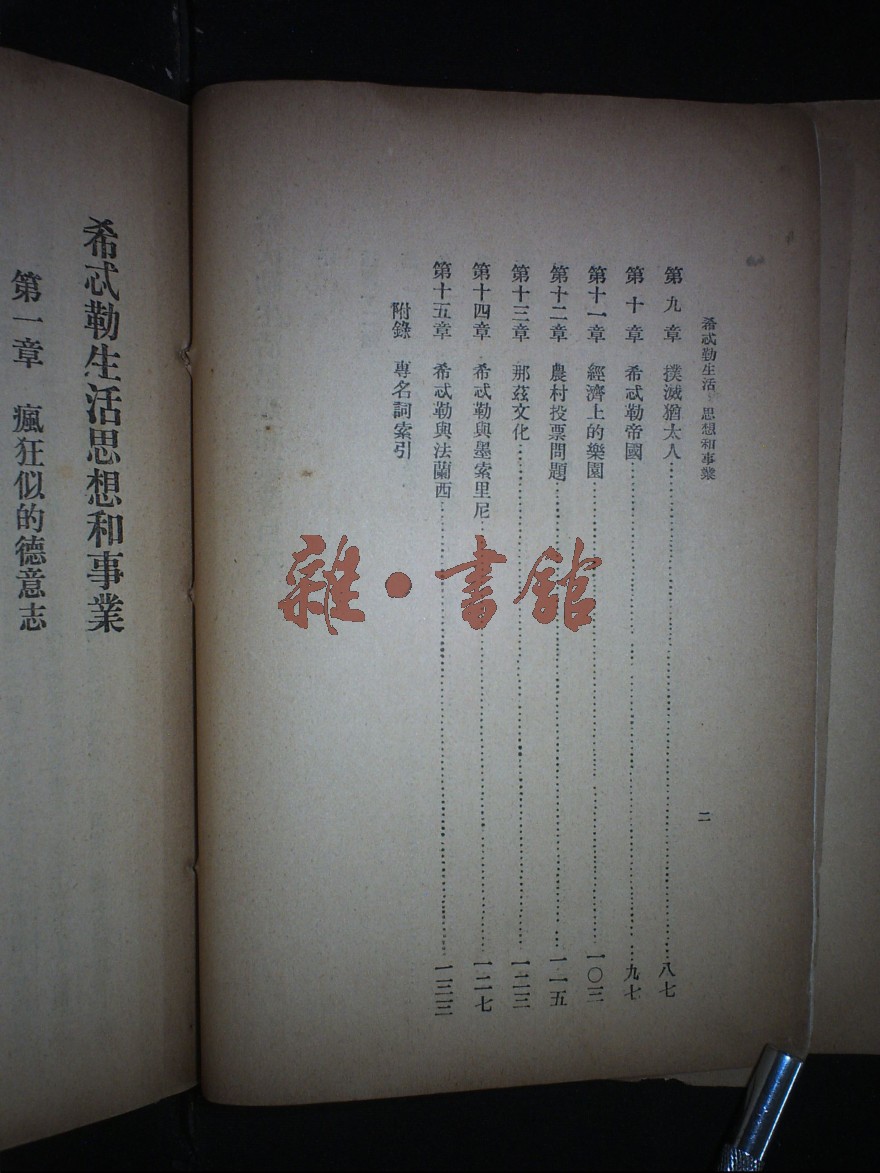 希忒勒生活：思想和事業
二
第九章　撲滅猶太人……八七
第十章　希忒勒帝國……九七
第十一章　經濟上的樂園……一〇三
第十二章　農村投票問題……一一五
第十三章　那茲文化……一二三
第十四章　希忒勒與墨索里尼……一二七
第十五章　希忒勒與法蘭西……一三三
附錄　專名詞索引
希忒勒生活思想和事業
第一章　瘋狂似的德意志
雜·書館